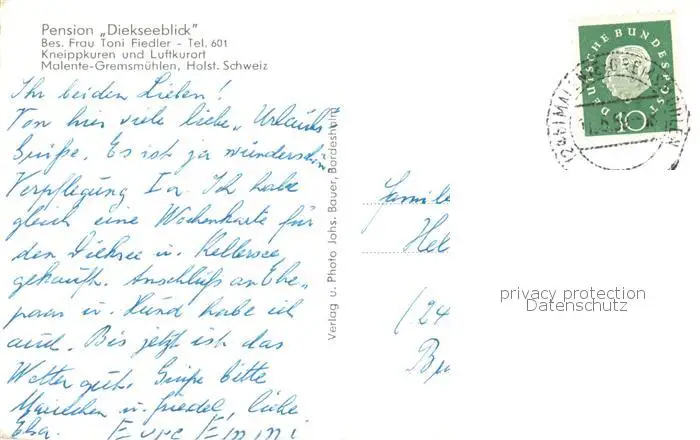 Pension „Diekseeblick"
Bes. Frau Toni Fiedler - Tel. 601
Kneippkuren und Luftkurort
Malente-Gremsmühlen, Holst. Schweiz
Ihr beiden Lieben!
Von hier viele liebe „Urlaubs"
Grüße. Es ist ja wunderschön
Verpflegung Ia. Ich habe
gleich eine Wochenkarte für
den Dieksee u. Kellersee
gekauft. Anschluß an Ehe„
paar u. Hund habe ich
auch. Bis jetzt ist das
Wetter gut. Grüße bitte
Mariechen u. Friedel, liebe
Elsa. Eure Emmi
Verlag u. Photo Johs. Bauer, Bordesholm
DEUTSCHE BUNDESPOST
10
Familie
Hel
(24
privacy protection
Datenschutz